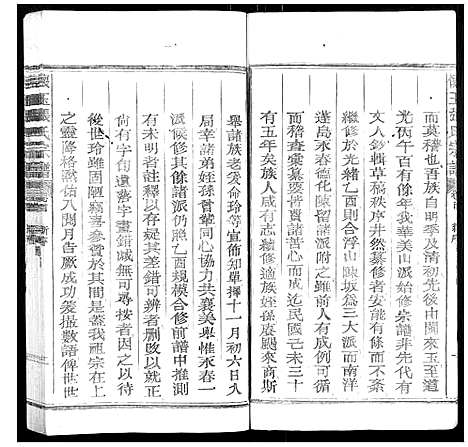 而莫稽也吾族自明季及清初先後由閩來玉至道
光丙午百有餘年我華美山派始修宗譜非先代有
文人鈔輯草稿秩序井然纂修者安能有條不紊
繼修於光緒乙酉則合浮山陳坂為三大派而南洋
蓬島永春德化陳留諸派附之雖前人有成例可循
而稽查彙纂覺費諸苦心而成迄民國己未三十
有五年矣族人咸有志續修適永春族孫颺來商斯
舉諸族老爰命玲等宣佈知單擇十一月初六日入
局幸諸弟姪孫曾輩同心協力共襄美舉惟永春一
派候修其餘諸派仍照乙酉規模合修前譜中推測
有未明者註釋以存疑其差錯可辨者刪改以就正
尚有何字句遺落字畫錯誠無可尋按者因之以待
後世玲雖固陋竊喜參贊於其間是蓋我祖宗在上
之靈降格默佑八閱月告厥成功爰撮數語俾世世